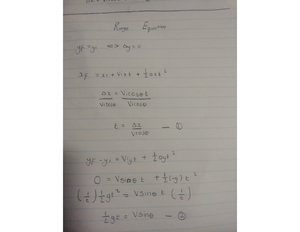 Range Equation
yf = yi ⇔ Δy = 0
xf = xi + Vixt + ½axt²
Δx = Vicosθt
Vicosθ Vicosθ
t = Δx / Vicosθ — ①
yf = yi + Viyt + ½gt²
0 = Vsinθt + ½(g)t²
(1/t) ½gt² = Vsinθt (1/t)
½gt = Vsinθ — ②